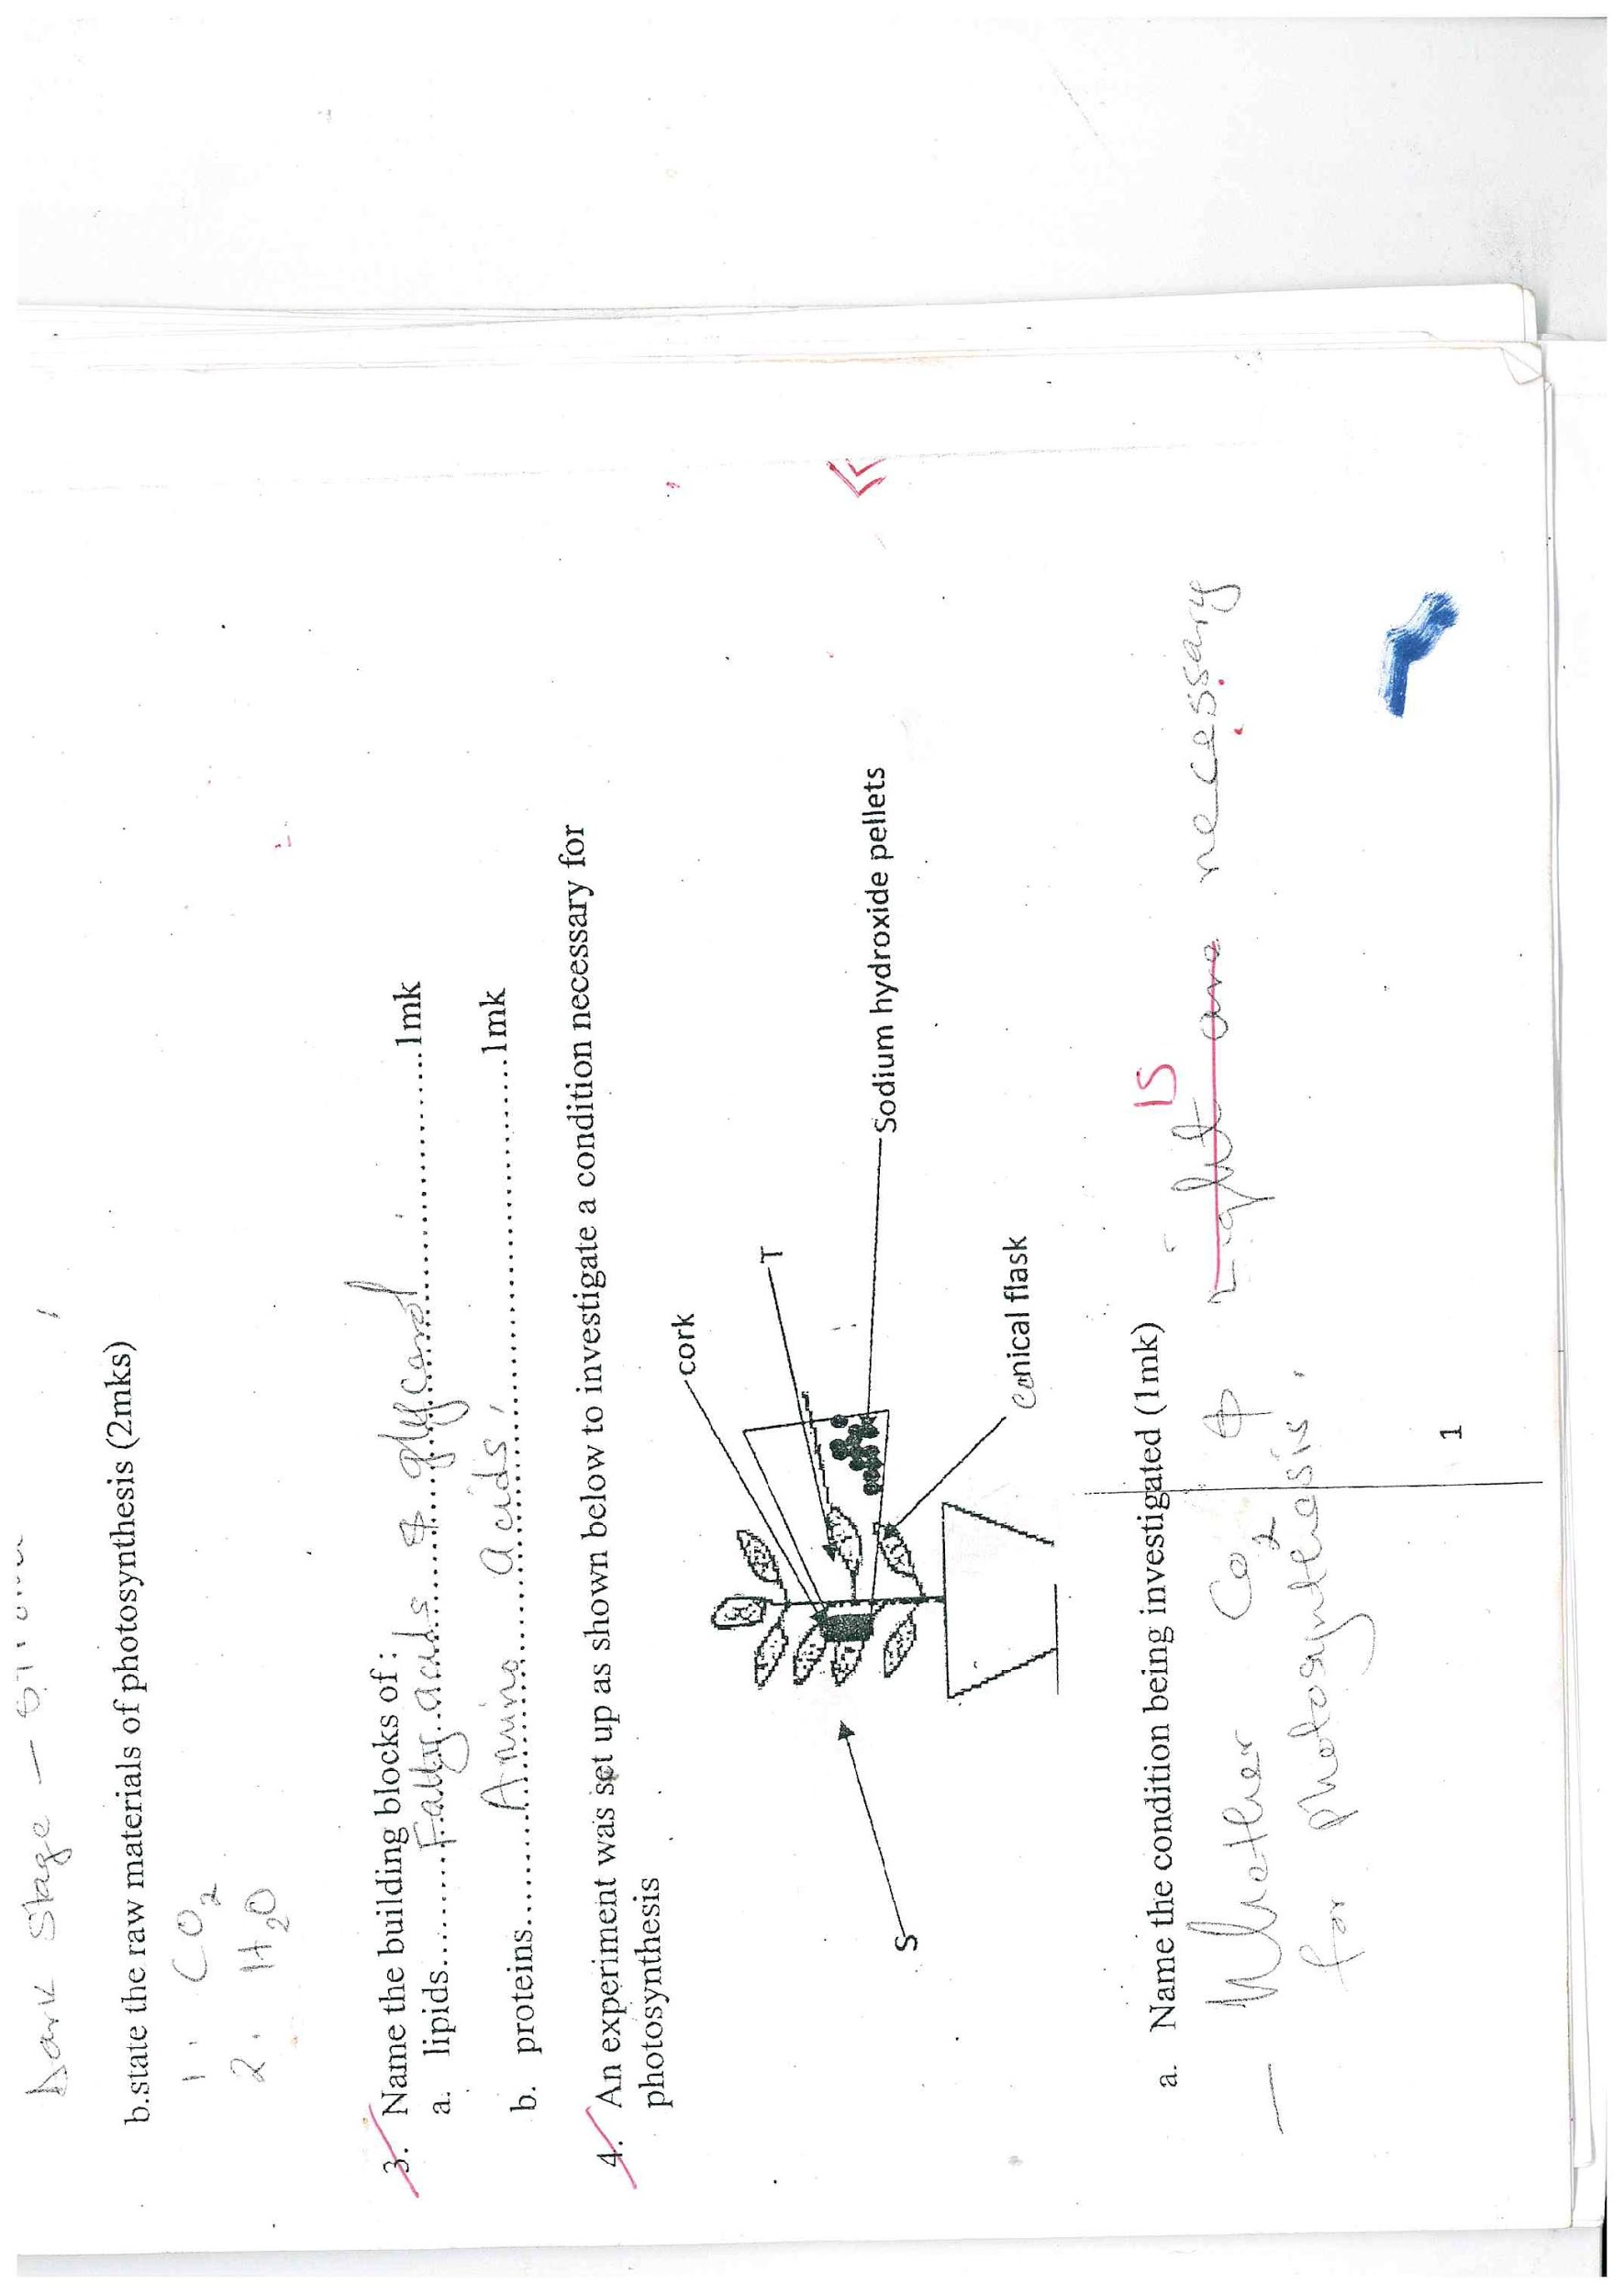 Dark Stage –
b.state the raw materials of photosynthesis (2mks)
1. CO2
2. H2O
3. Name the building blocks of :
a. lipids.........Fatty acids & glycerol.........1mk
b. proteins.........Amino acids.........1mk
4. An experiment was set up as shown below to investigate a condition necessary for
photosynthesis
cork
T
S
Sodium hydroxide pellets
conical flask
a. Name the condition being investigated (1mk)
IS
— Whether CO2 & Light are necessary
for photosynthesis.
1